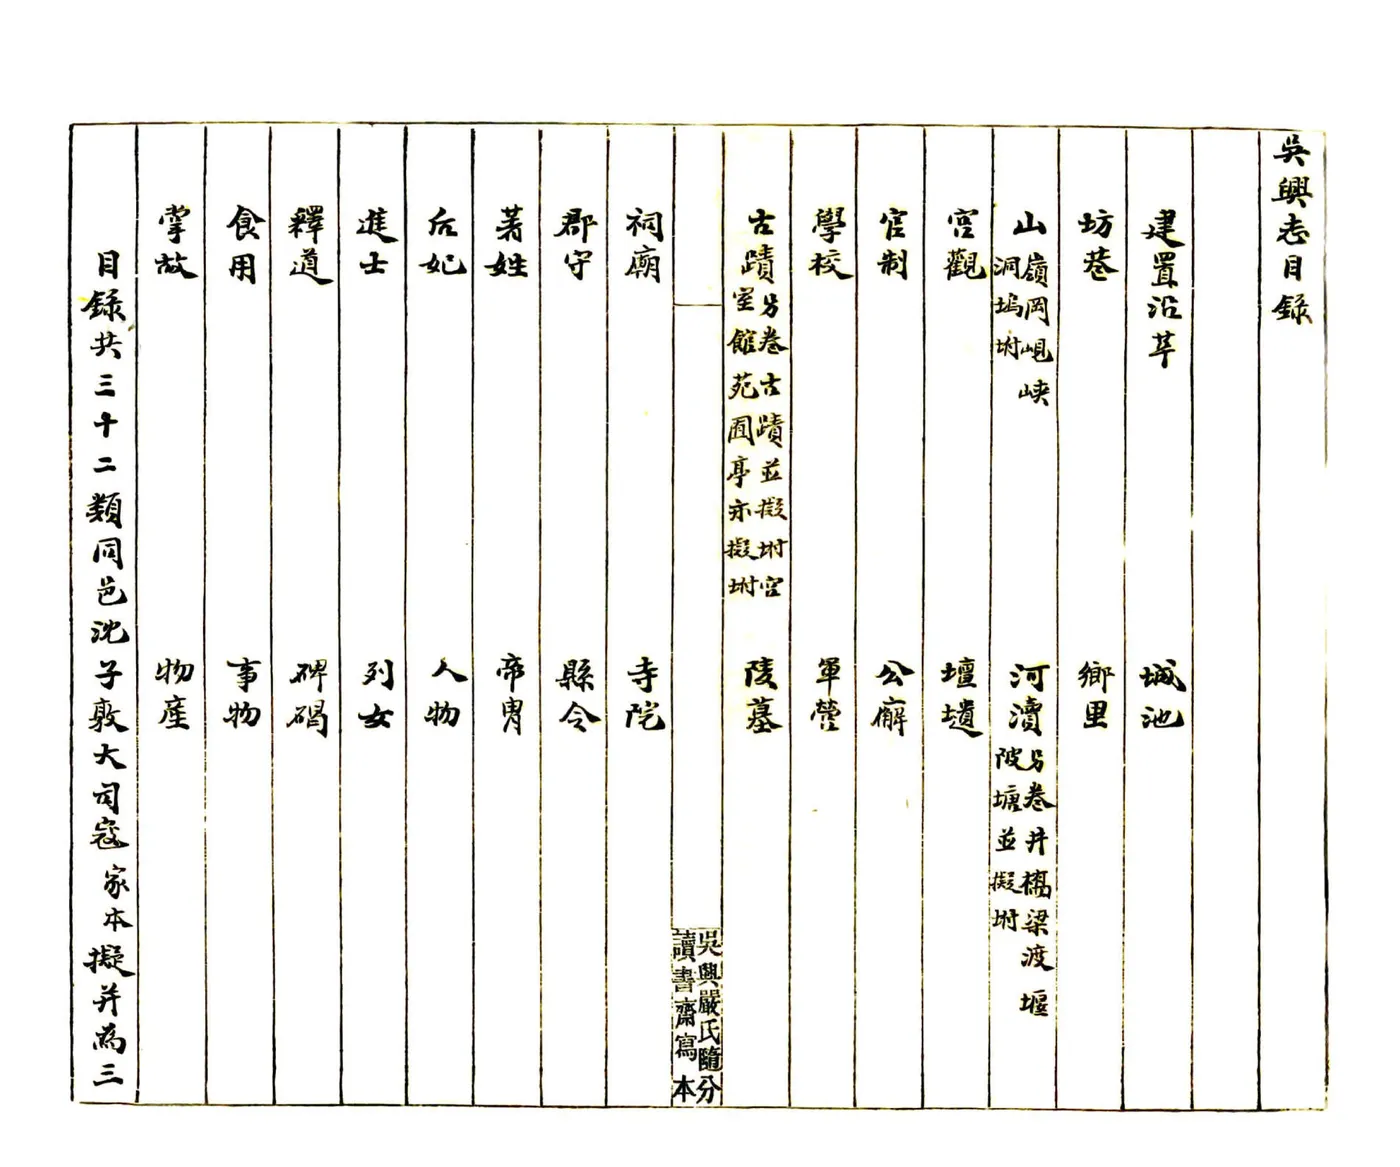 吳興志目錄
建置沿革　城池
坊巷　鄉里
山嶺岡峴峽洞塢坿　河瀆另卷井橋梁渡堰陂塘並擬坿
宮觀　壇壝
官制　公廨
學校　軍營
古蹟另卷古蹟並擬坿宮室館苑囿亭亦擬坿　陵墓
吳興嚴氏隨分讀書齋寫本
祠廟　寺院
郡守　縣令
著姓　帝胄
后妃　人物
進士　列女
釋道　碑碣
食用　事物
掌故　物產
目錄共三十二類同邑沈子敦大司寇家本擬并為三